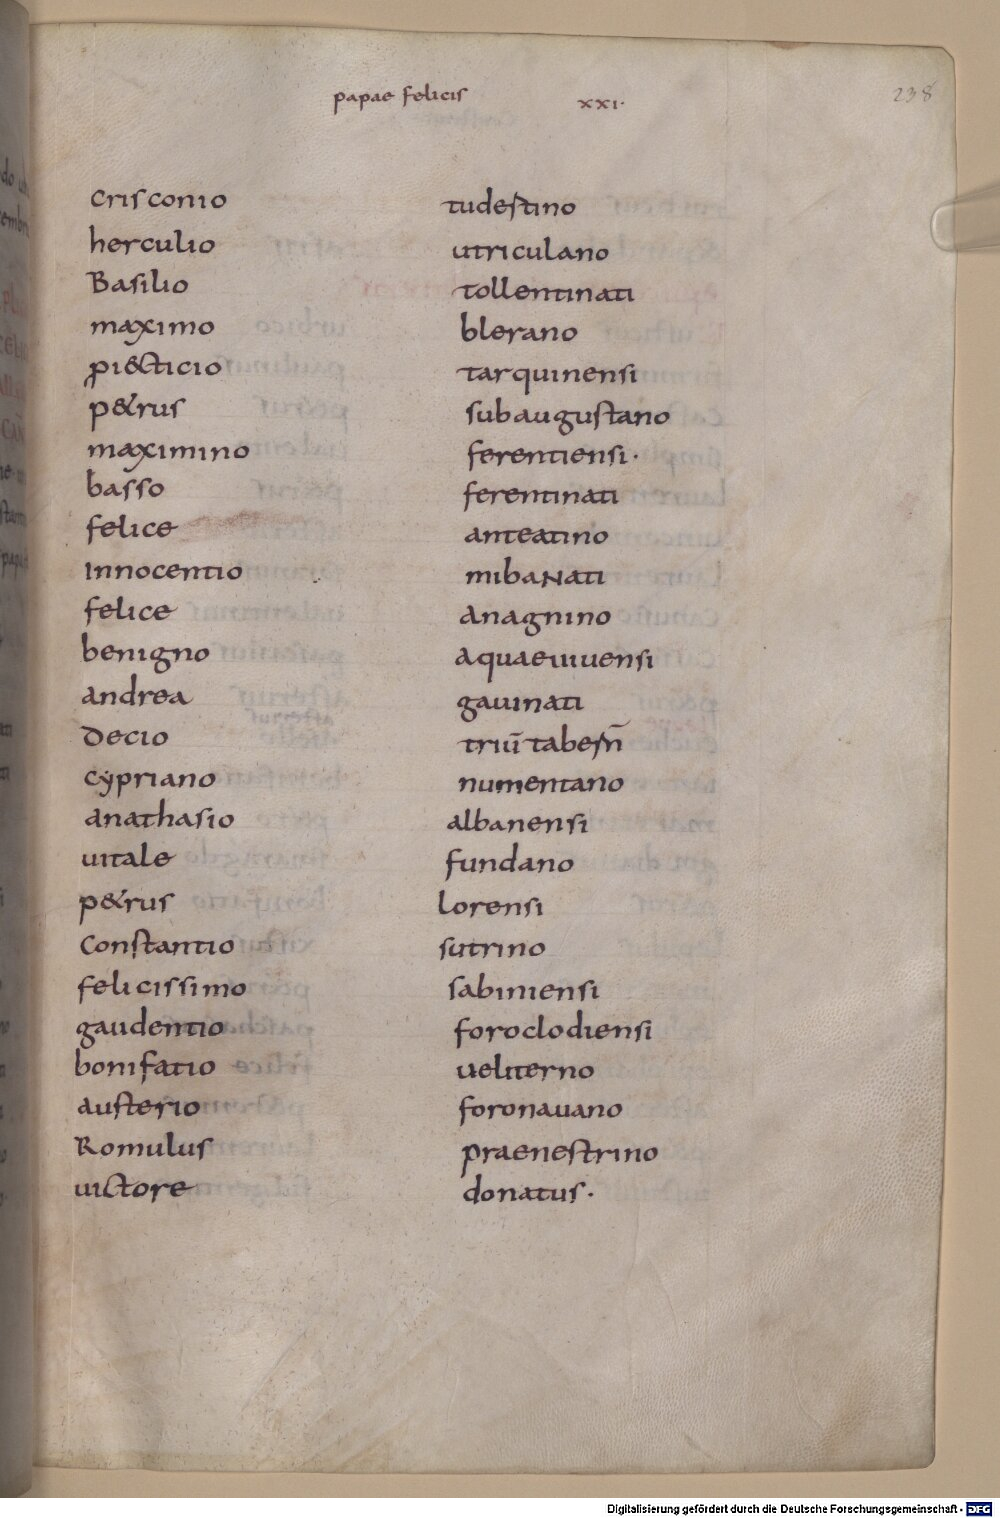 papae felicis xxi·
238
Crisconio tudestino
herculio utriculano
Basilio tollentinati
maximo blerano
piecticio tarquinensi
petrus subaugustano
maximino ferentiensi·
basso ferentinati
felice anteatino
Innocentio mibaNati
felice anagnino
benigno aquaeuiuensi
andrea gauinati
Decio triū tabern̄
Cypriano numentano
anathasio albanensi
uitale fundano
petrus lorensi
Constantio sutrino
felicissimo sabiniensi
gaudentio foroclodiensi
bonifatio ueliterno
austerio foronauano
Romulus praenestrino
uictore donatus·
Digitalisierung gefördert durch die Deutsche Forschungsgemeinschaft - DFG